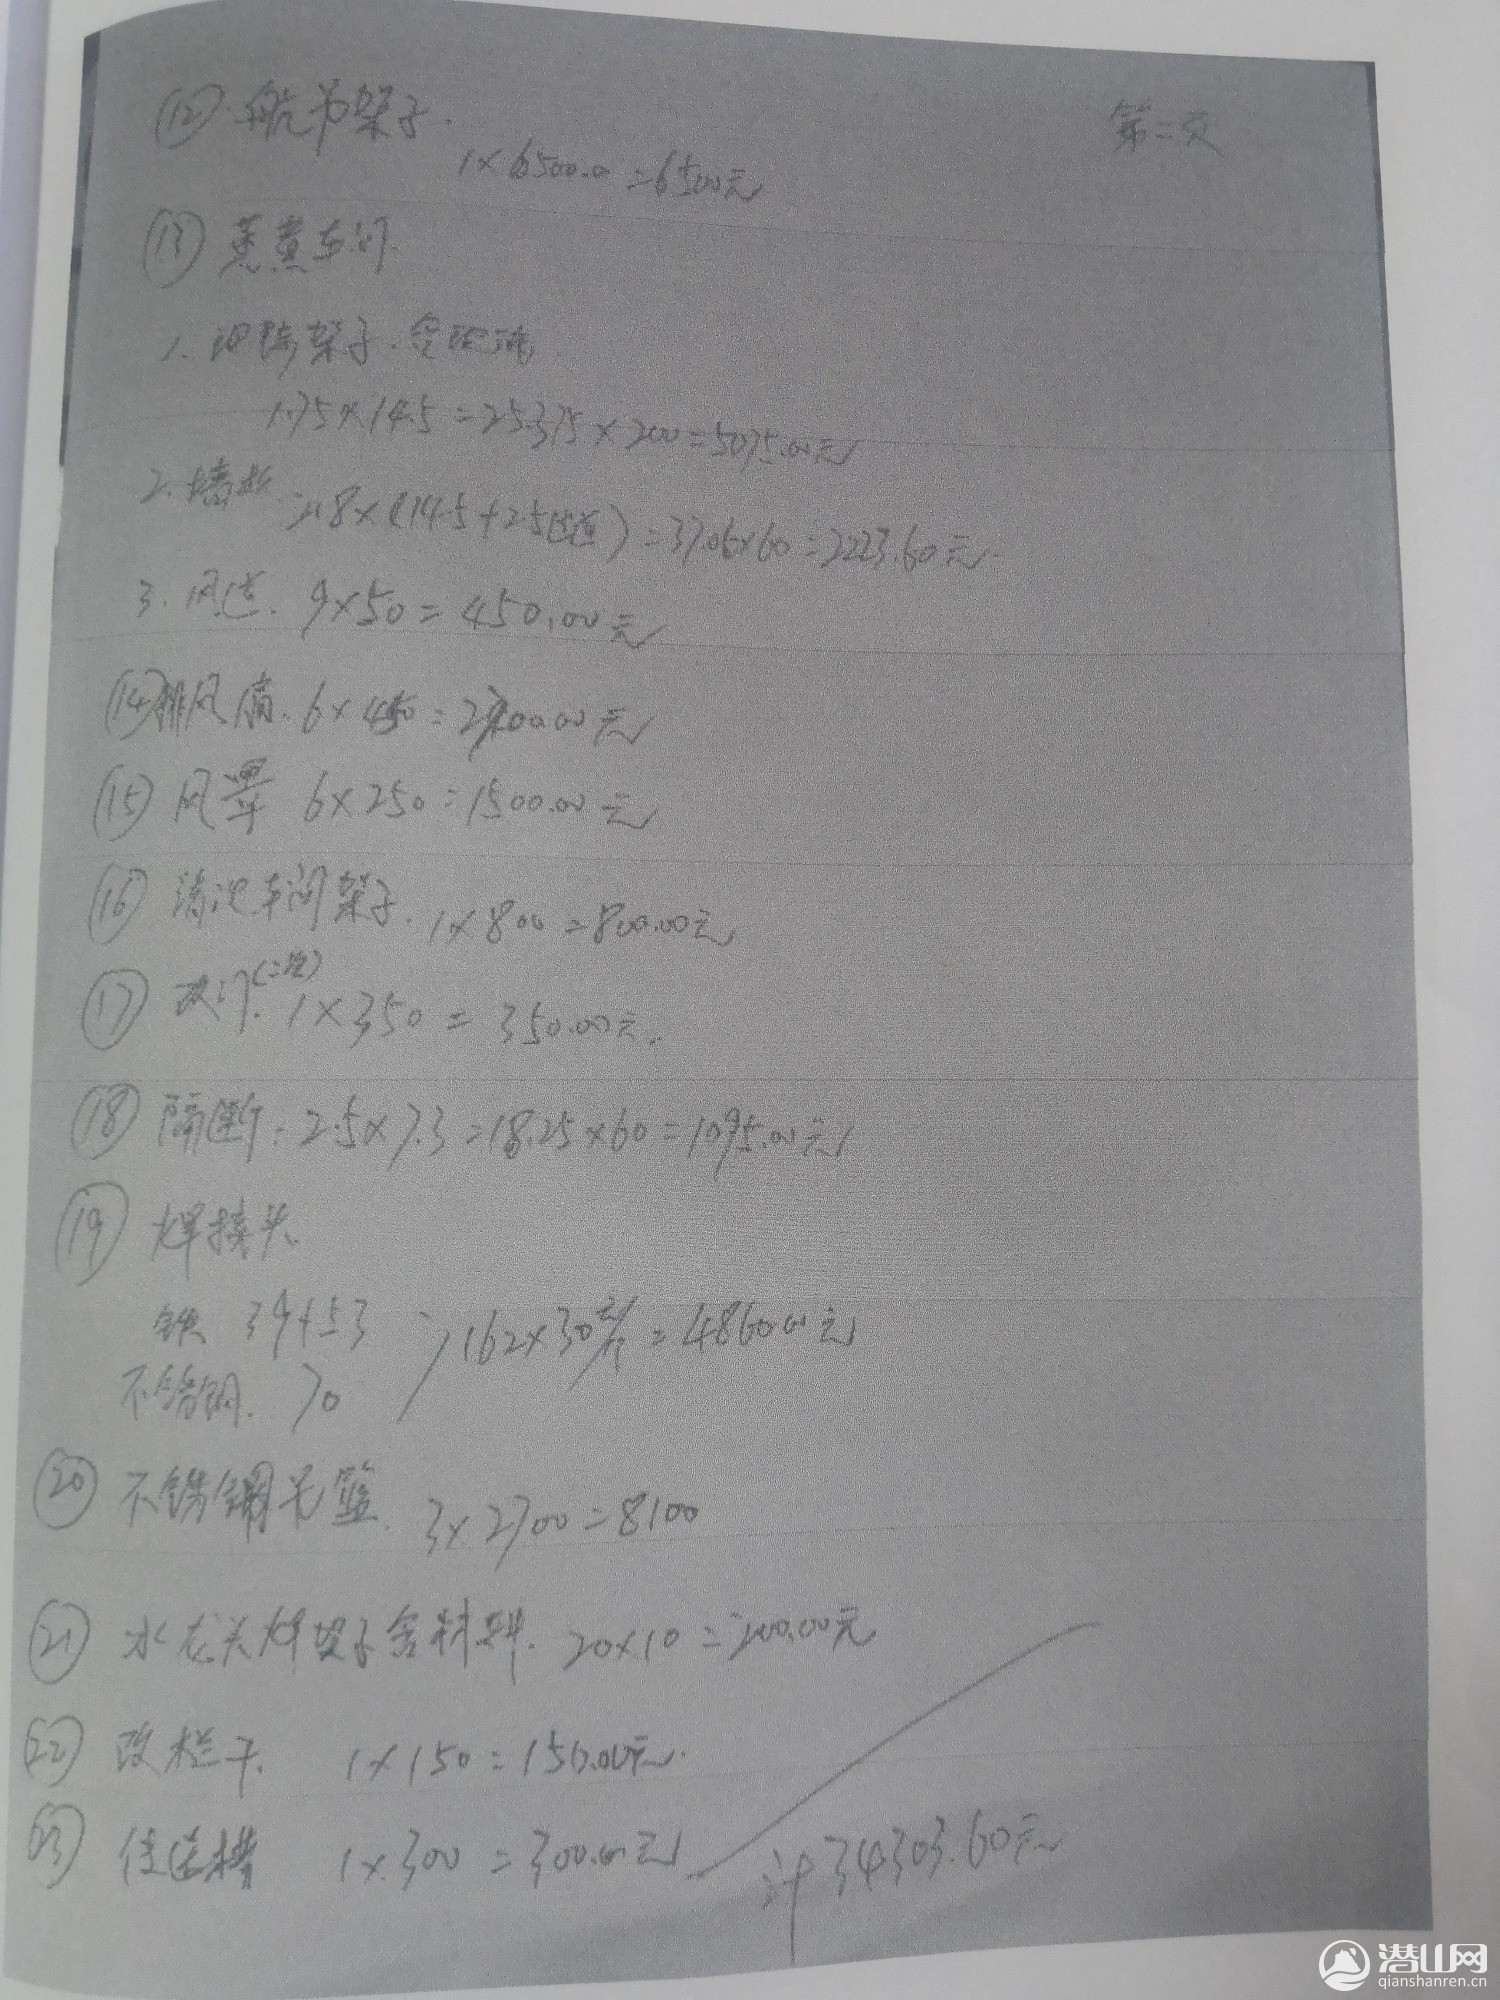 ⑫ 航吊架子.
第二页
1×6500.00=6500元
⑬ 蒸煮车间.
1. 架子.
1.75×14.5=25.375×200=5075.00元
2. 墙板 2.18×(14.5+2.5)=37.06×60=2223.60元
3. 风道. 9×50=450.00元
⑭排风扇. 6×450=2700.00元
⑮ 风罩 6×250=1500.00元
⑯ 清洗车间架子. 1×800=800.00元
⑰ 改门. 1×350=350.00元.
⑱ 隔断. 2.5×7.3=18.25×60=1095.00元
⑲ 焊接头
铁 39+53
162×30元/个=4860.00元
不锈钢. 70
⑳ 不锈钢吊篮. 3×2700=8100
㉑ 水龙头焊架子含材料. 20×10=200.00元
㉒ 改栏干. 1×150=150.00元.
㉓ 1×300=300.00元
计34303.60元
潜山网
qianshanren.cn